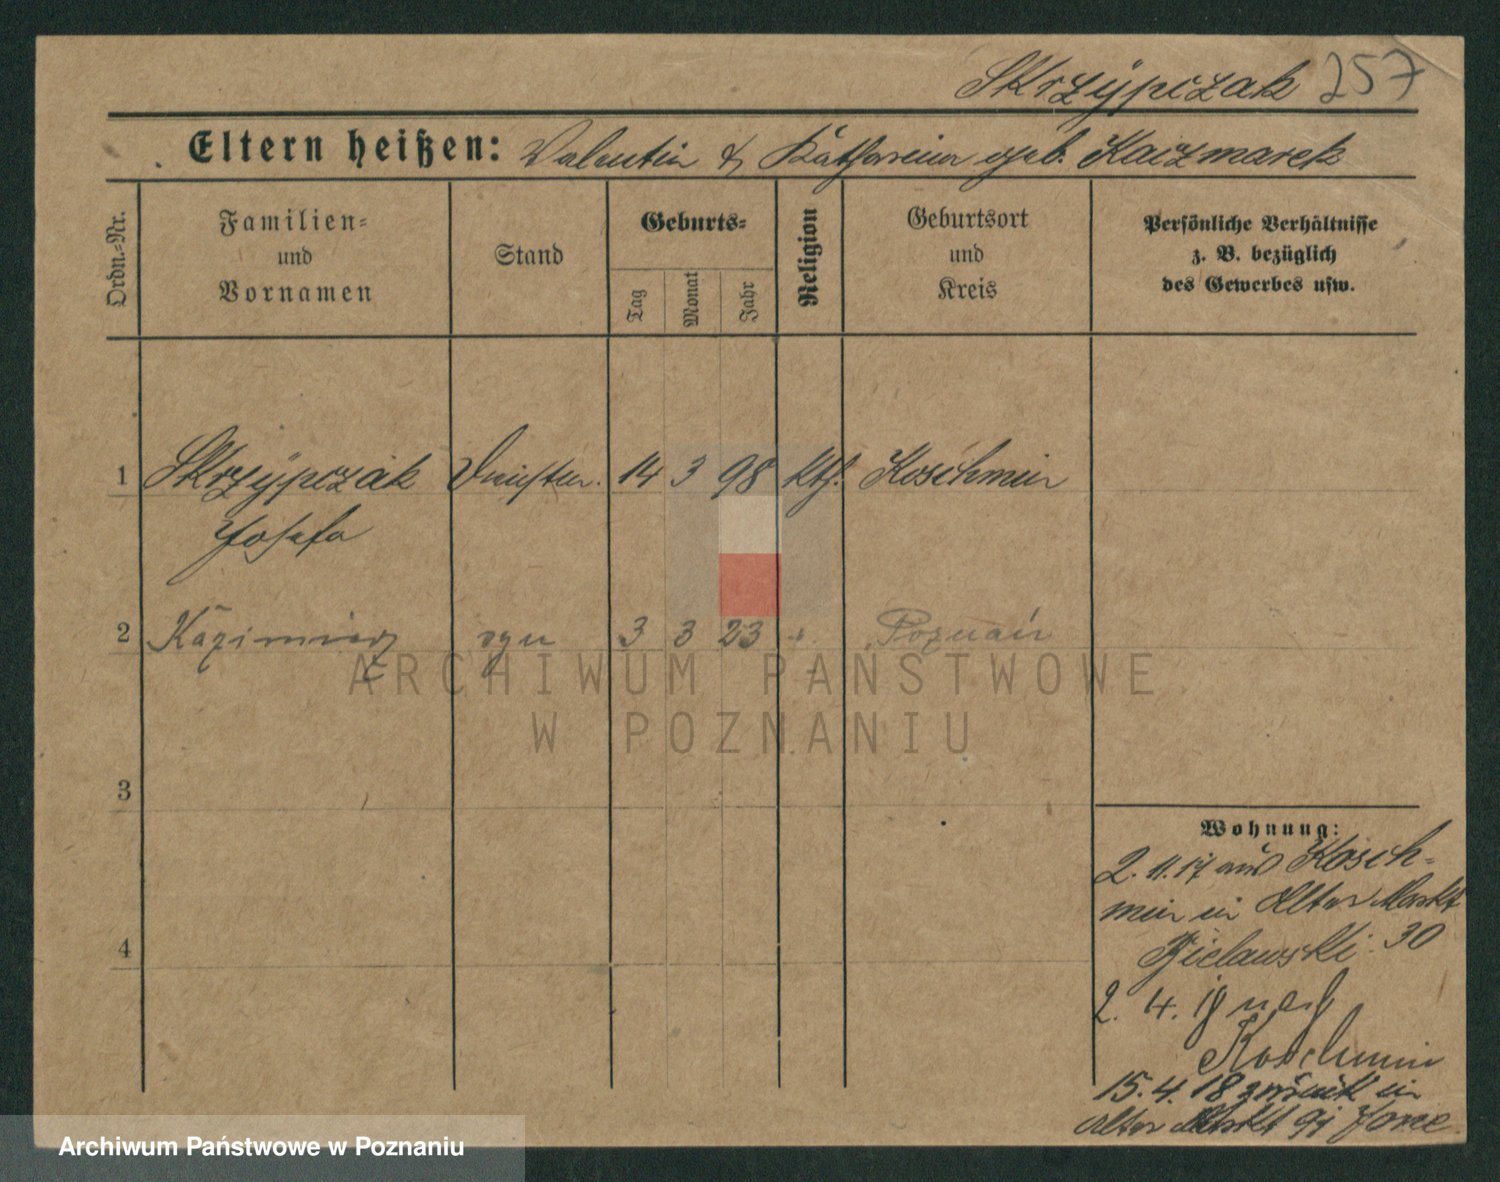 Skrzypczak 257
Eltern heißen: Valentin & Katharina geb. Kaczmarek
Ordn.-Nr.
Familien-
und
Vornamen
Stand
Geburts-
Tag
Monat
Jahr
Religion
Geburtsort
und
Kreis
Persönliche Verhältnisse
z. B. bezüglich
des Gewerbes usw.
1 Skrzypczak 14 3 98 kth. Koschmin
Josefa
2 Kazimierz syn 3 3 23 " Poznań
ARCHIWUM PAŃSTWOWE
W POZNANIU
3
Wohnung:
2. 11. 17 aus Kosch-
min in Alter Markt
Bielawski 30
4
2. 4. 18 nach
Koschmin
15. 4. 18 zurück in
Alter Markt
Archiwum Państwowe w Poznaniu